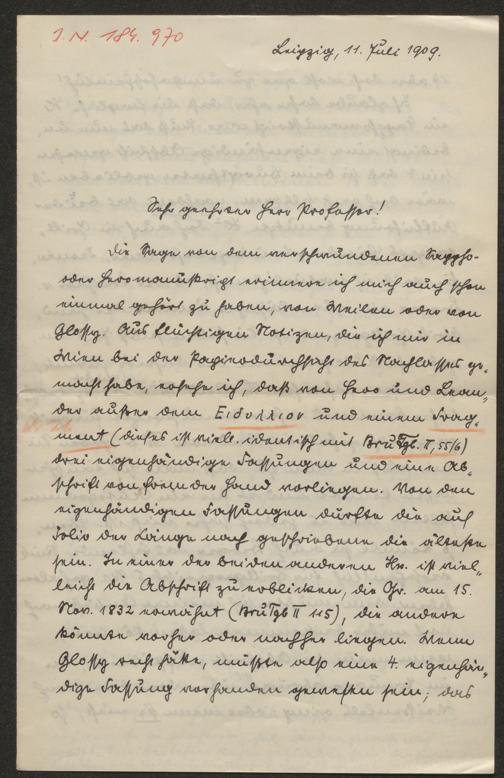 J.N. 184.970
Leipzig, 11. Juli 1909.
Sehr geehrter Herr Professor!
Die Sage von dem verschwundenen Sappho-
oder Heromanuskript erinnere ich mich auch schon
einmal gehört zu haben, von Weilen oder von
Glossy. Aus flüchtigen Notizen, die ich mir in
Wien bei der Papierdurchsicht des Nachlasses ge-
macht habe, ersehe ich, daß von Hero und Lean-
der außer dem Ειδυλλιον und einem Frag-
ment (dieses ist viell. identisch mit BruTgb. II, 55/6)
drei eigenhändige Fassungen und eine Ab-
schrift von fremder Hand vorliegen. Von den
eigenhändigen Fassungen dürfte die auf
Folio der Länge nach geschriebene die älteste
sein. In einer der beiden anderen Hs. ist viel-
leicht die Abschrift zu erblicken, die Gr. am 15.
Nov. 1832 erwähnt (BruTgb II 115), die andere
könnte vorher oder nachher liegen. Wenn
Glossy recht hätte, müßte also eine 4. eigenhän-
dige Fassung vorhanden gewesen sein; das